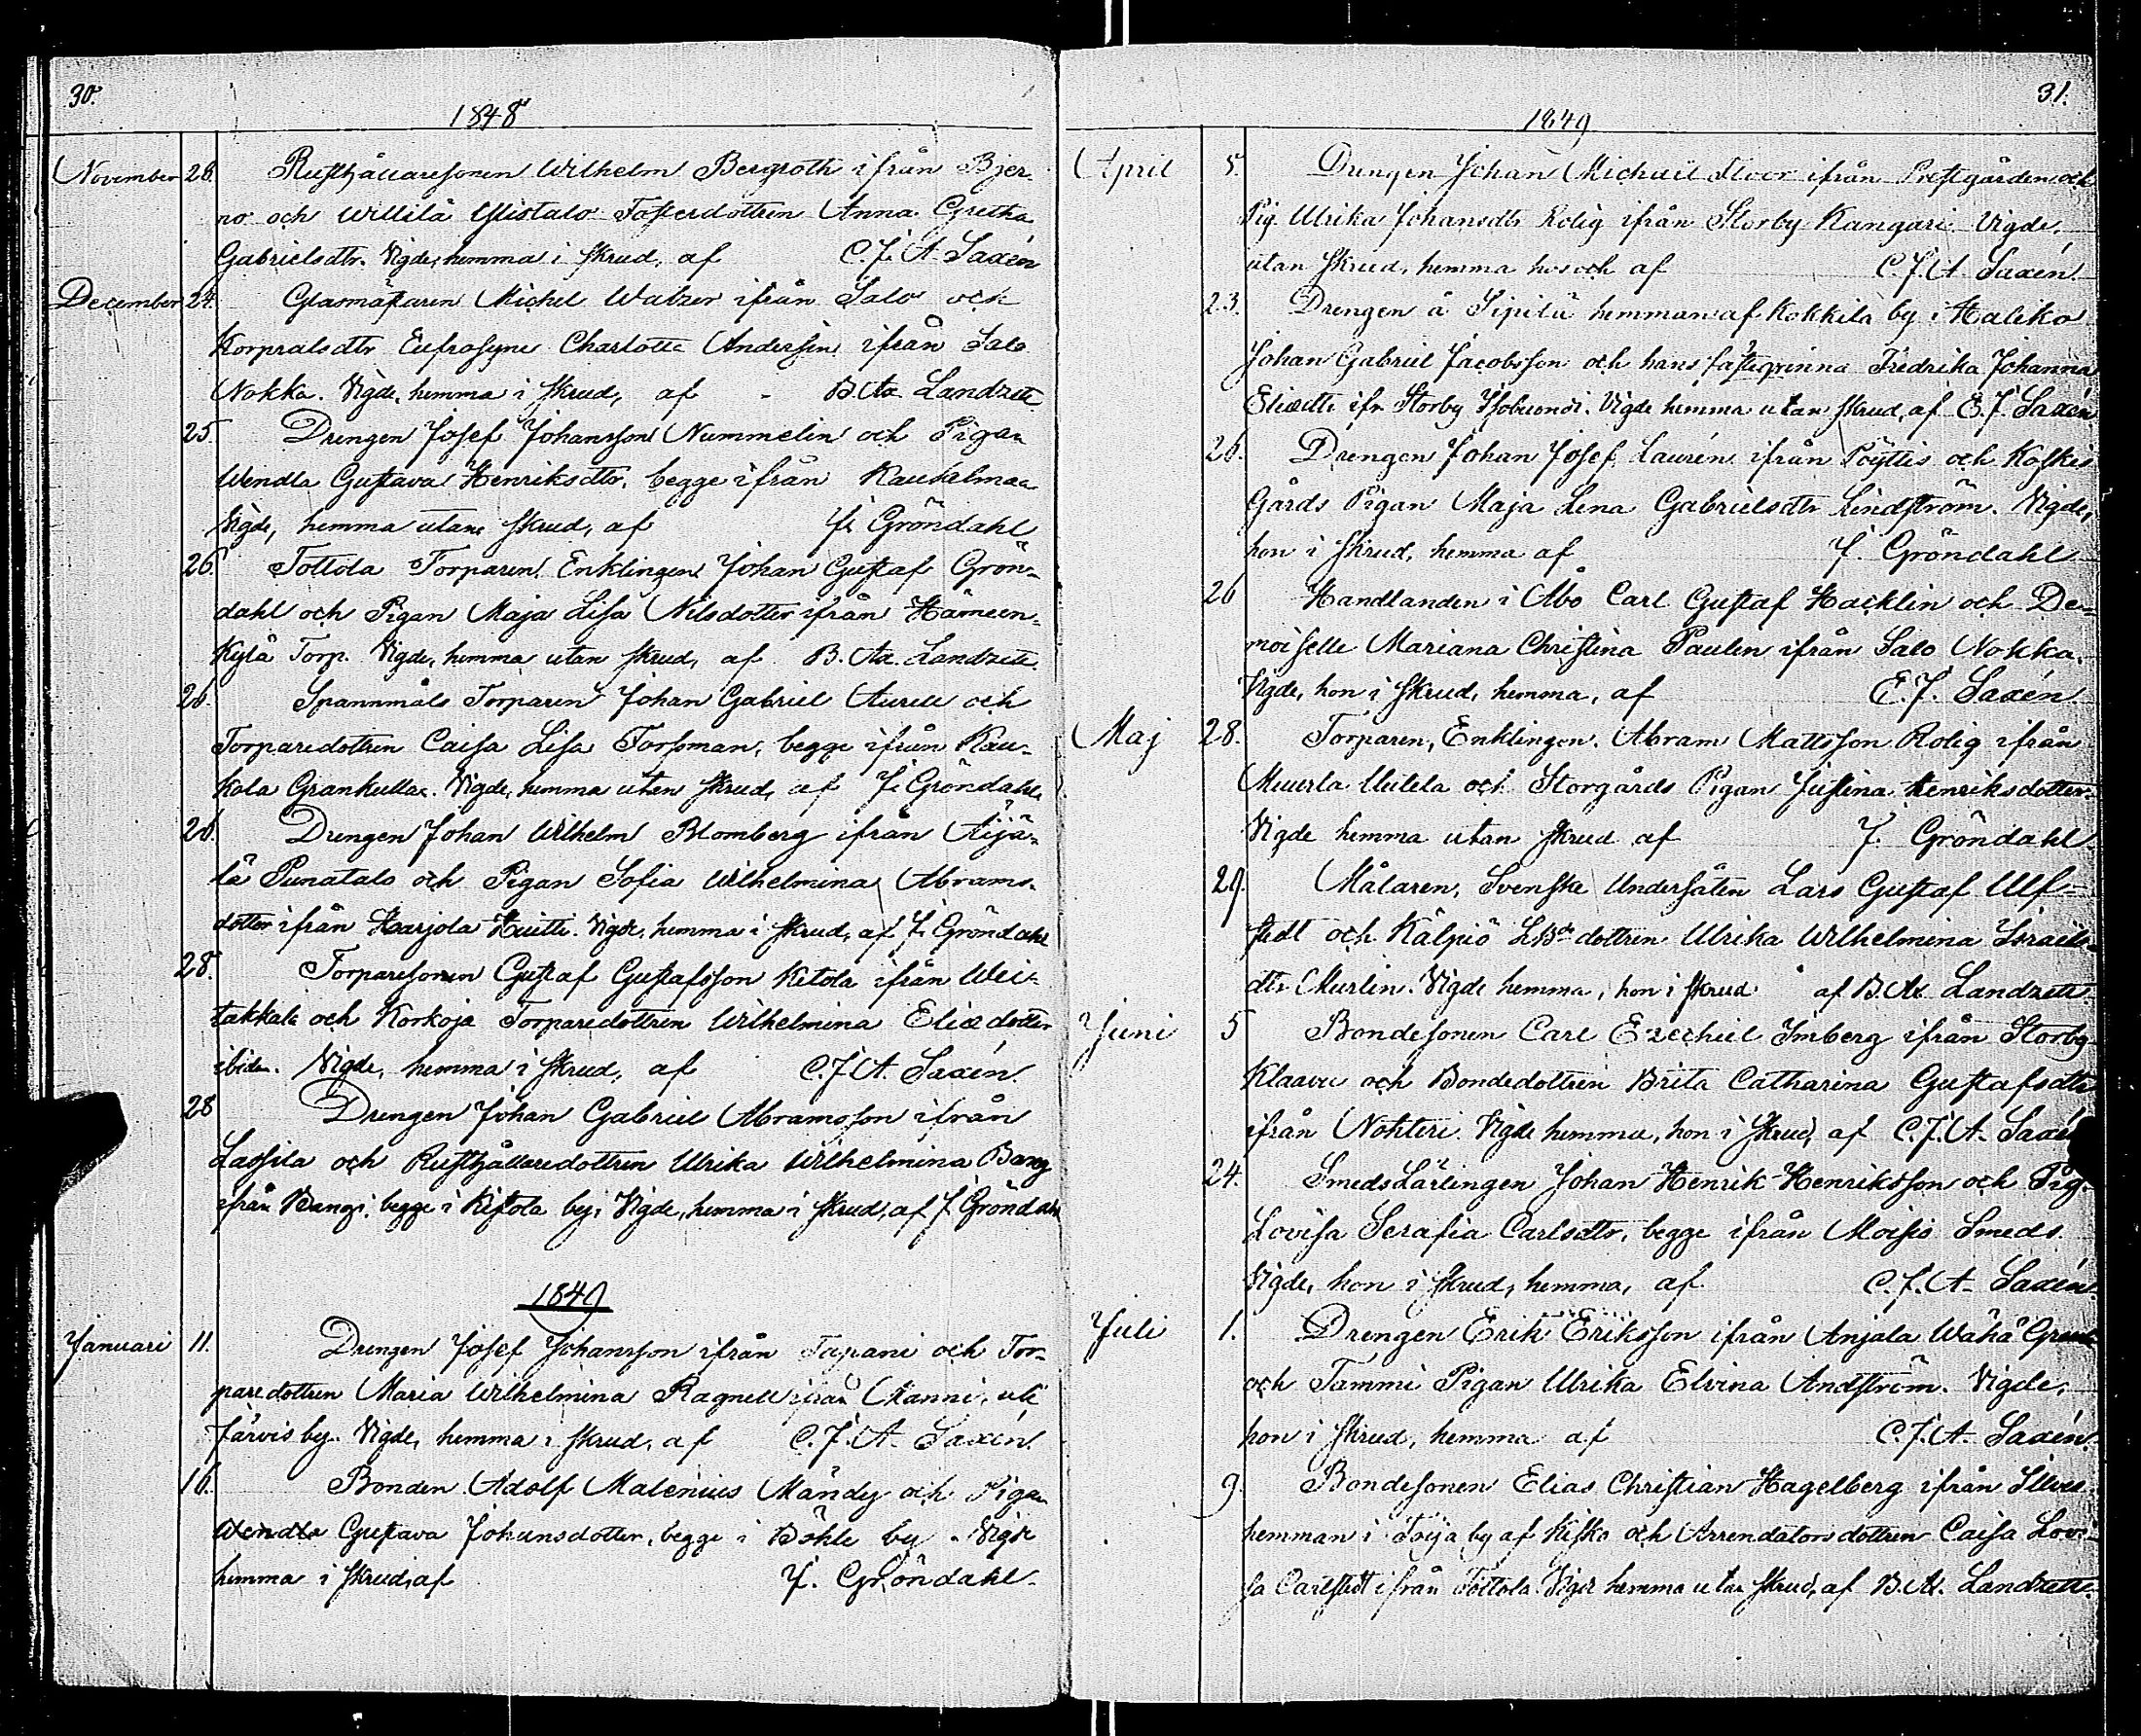 30.
1848
November 28. Rusthållaresonen Wilhelm Bergroth ifrån Bjer-
no och Willilä Ylistalo Fosterdottren Anna Gretha
Gabrielsdtr. Vigde, hemma i skrud, af C. J. A. Saxén
December 24. Glasmästaren Michel Walzer ifrån Salo och
Korpralsdtr Eufrosyne Charlotta Andersin ifrån Salo
Nokka. Vigde, hemma i skrud, af - B. Ad. Landzett.
25. Drengen Josef Johansson Nummelin och Pigan
Wendla Gustava Henriksdtr, begge ifrån Kaukelmaa
Vigde, hemma utan skrud, af J. Gröndahl
26. Tottola Torparen, Enklingen Johan Gustaf Grön-
dahl och Pigan Maja Lisa Nilsdotter ifrån Hämeen-
Kylä Torp. Vigde, hemma utan skrud, af B. Ad. Landzett.
26. Spannmåls Torparen Johan Gabriel Aurell och
Torparedottren Caisa Lisa Forsman, begge ifrån Kau-
kola Grankulla. Vigde, hemma utan skrud, af J. Gröndahl
26. Drengen Johan Wilhelm Blomberg ifrån Äijä-
lä Punatalo och Pigan Sofia Wilhelmina Abrams-
dotter ifrån Harjola Huitti. Vigde, hemma i skrud, af J. Gröndahl
28. Torparesonen Gustaf Gustafsson Ketola ifrån Wei-
takkala och Korkoja Torparedottren Wilhelmina Eliædotter
ibidm. Vigde, hemma i skrud, af C. J. A. Saxén.
28 Drengen Johan Gabriel Abramsson ifrån
Lassila och Rusthållaredottren Ulrika Wilhelmina Bang
ifrån Bangi, begge i Kistola by. Vigde, hemma i skrud, af J. Gröndahl
1849
Januari 11. Drengen Josef Johansson ifrån Tapani och Tor-
paredottren Maria Wilhelmina Ragnell ifrån Nanni, uti
Järvis by. Vigde, hemma i skrud, af C. J. A. Saxén.
16. Bonden Adolf Malenius Mändy och Pigan
Wendla Gustava Johansdotter, begge i Böhle by. Vigde
hemma i skrud, af J. Gröndahl.
31.
1849
April 5. Drengen Johan Michaël Stoor ifrån Prestgården och
Pig. Ulrika Johansdtr Rolig ifrån Storby Kangari. Vigde,
utan skrud, hemma hos och af C. J. A. Saxén.
23. Drengen å Sipilä hemman af Kokkila by i Haliko
Johan Gabriel Jacobsson och hans fästeqvinna Fredrika Johanna
Eliædtr ifr. Storby. Vigde hemma utan skrud, af C. J. Saxén
26. Drengen Johan Josef Laurén ifrån Pöyttis och Koskis
Gårds Pigan Maja Lena Gabrielsdtr Lindström. Vigde,
hon i skrud, hemma af J. Gröndahl
26 Handlanden i Åbo Carl Gustaf Hacklin och De-
moiselle Mariana Christina Paulin ifrån Salo Nokka.
Vigde, hon i skrud, hemma, af C. J. Saxén.
Maj 28. Torparen, Enklingen. Abram Mattsson Rolig ifrån
Muurla Uulela och Storgårds Pigan Justina Henriksdotter.
Vigde hemma utan skrud af J. Gröndahl.
29. Målaren, Svenske Undersåten Lars Gustaf Ulf-
stedt och Kälpiö dottren Ulrika Wilhelmina Israels-
dtr Murlin. Vigde hemma, hon i skrud af B. Ad. Landzett.
Juni 5 Bondesonen Carl Ezechiel Imberg ifrån Storby
Klaavu och Bondedottren Brita Catharina Gustafsdtr
ifrån Nohteri. Vigde hemma, hon i skrud, af C. J. A. Saxén
24. Smeds Lärlingen Johan Henrik Henriksson och Pig.
Lovisa Serafia Carlsdtr, begge ifrån Moisio Smeds.
Vigde, hon i skrud, hemma, af C. J. A. Saxén.
Juli 1. Drengen Erik Eriksson ifrån Anjala Wähä
och Tammi Pigan Ulrika Elvina Andström. Vigde,
hon i skrud, hemma af C. J. A. Saxén.
9. Bondesonen Elias Christian Hagelberg ifrån Silves
hemman i Toija by af Kisko och Arrendatorsdottren Caisa Lovi-
sa Carlstedt ifrån Tottola. Vigde hemma utan skrud, af B. Ad. Landzett.